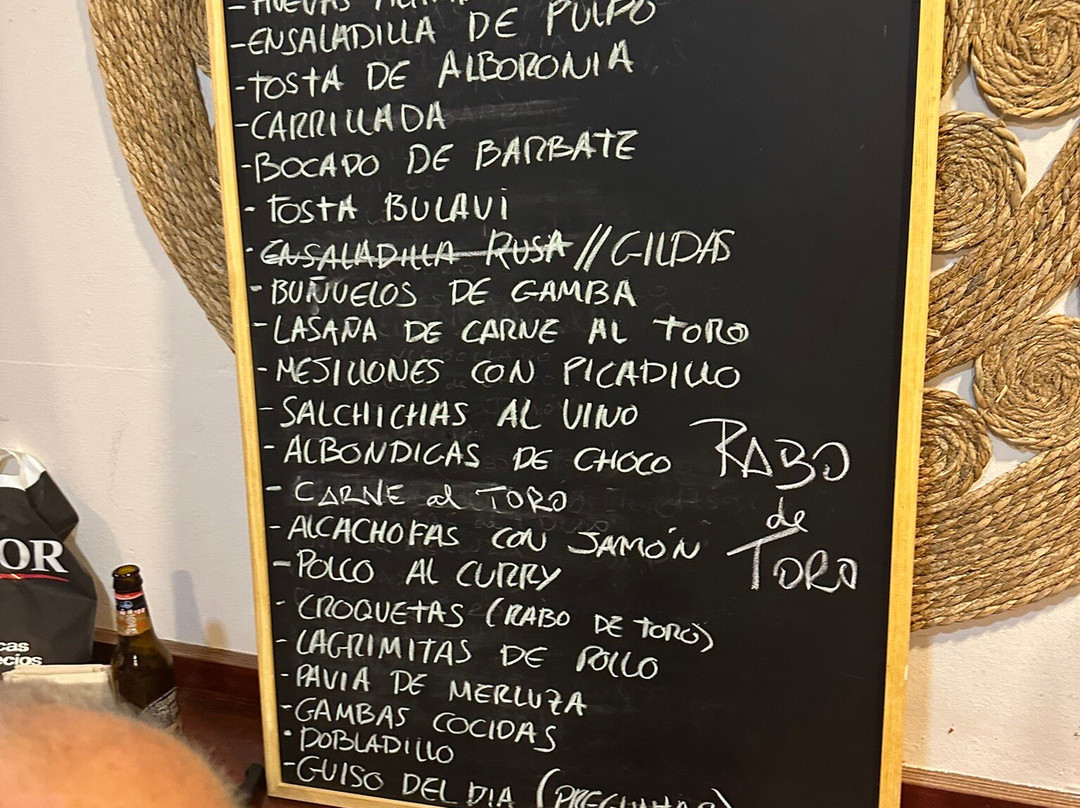 - HUEVAS
- ENSALADILLA DE PULPO
- TOSTA DE ALBORONIA
- CARRILLADA
- BOCADO DE BARBATE
- TOSTA BULAVI
- ENSALADILLA RUSA // GILDAS
- BUÑUELOS DE GAMBA
- LASAÑA DE CARNE AL TORO
- MEJILLONES CON PICADILLO
- SALCHICHAS AL VINO
- ALBONDIGAS DE CHOCO
- CARNE al TORO
- ALCACHOFAS CON JAMÓN
- POLLO AL CURRY
- CROQUETAS (RABO DE TORO)
- LAGRIMITAS DE POLLO
- PAVIA DE MERLUZA
- GAMBAS COCIDAS
- DOBLADILLO
- GUISO DEL DIA (PREGUNTAR)
RABO
de
TORO
OR
cas
ecios